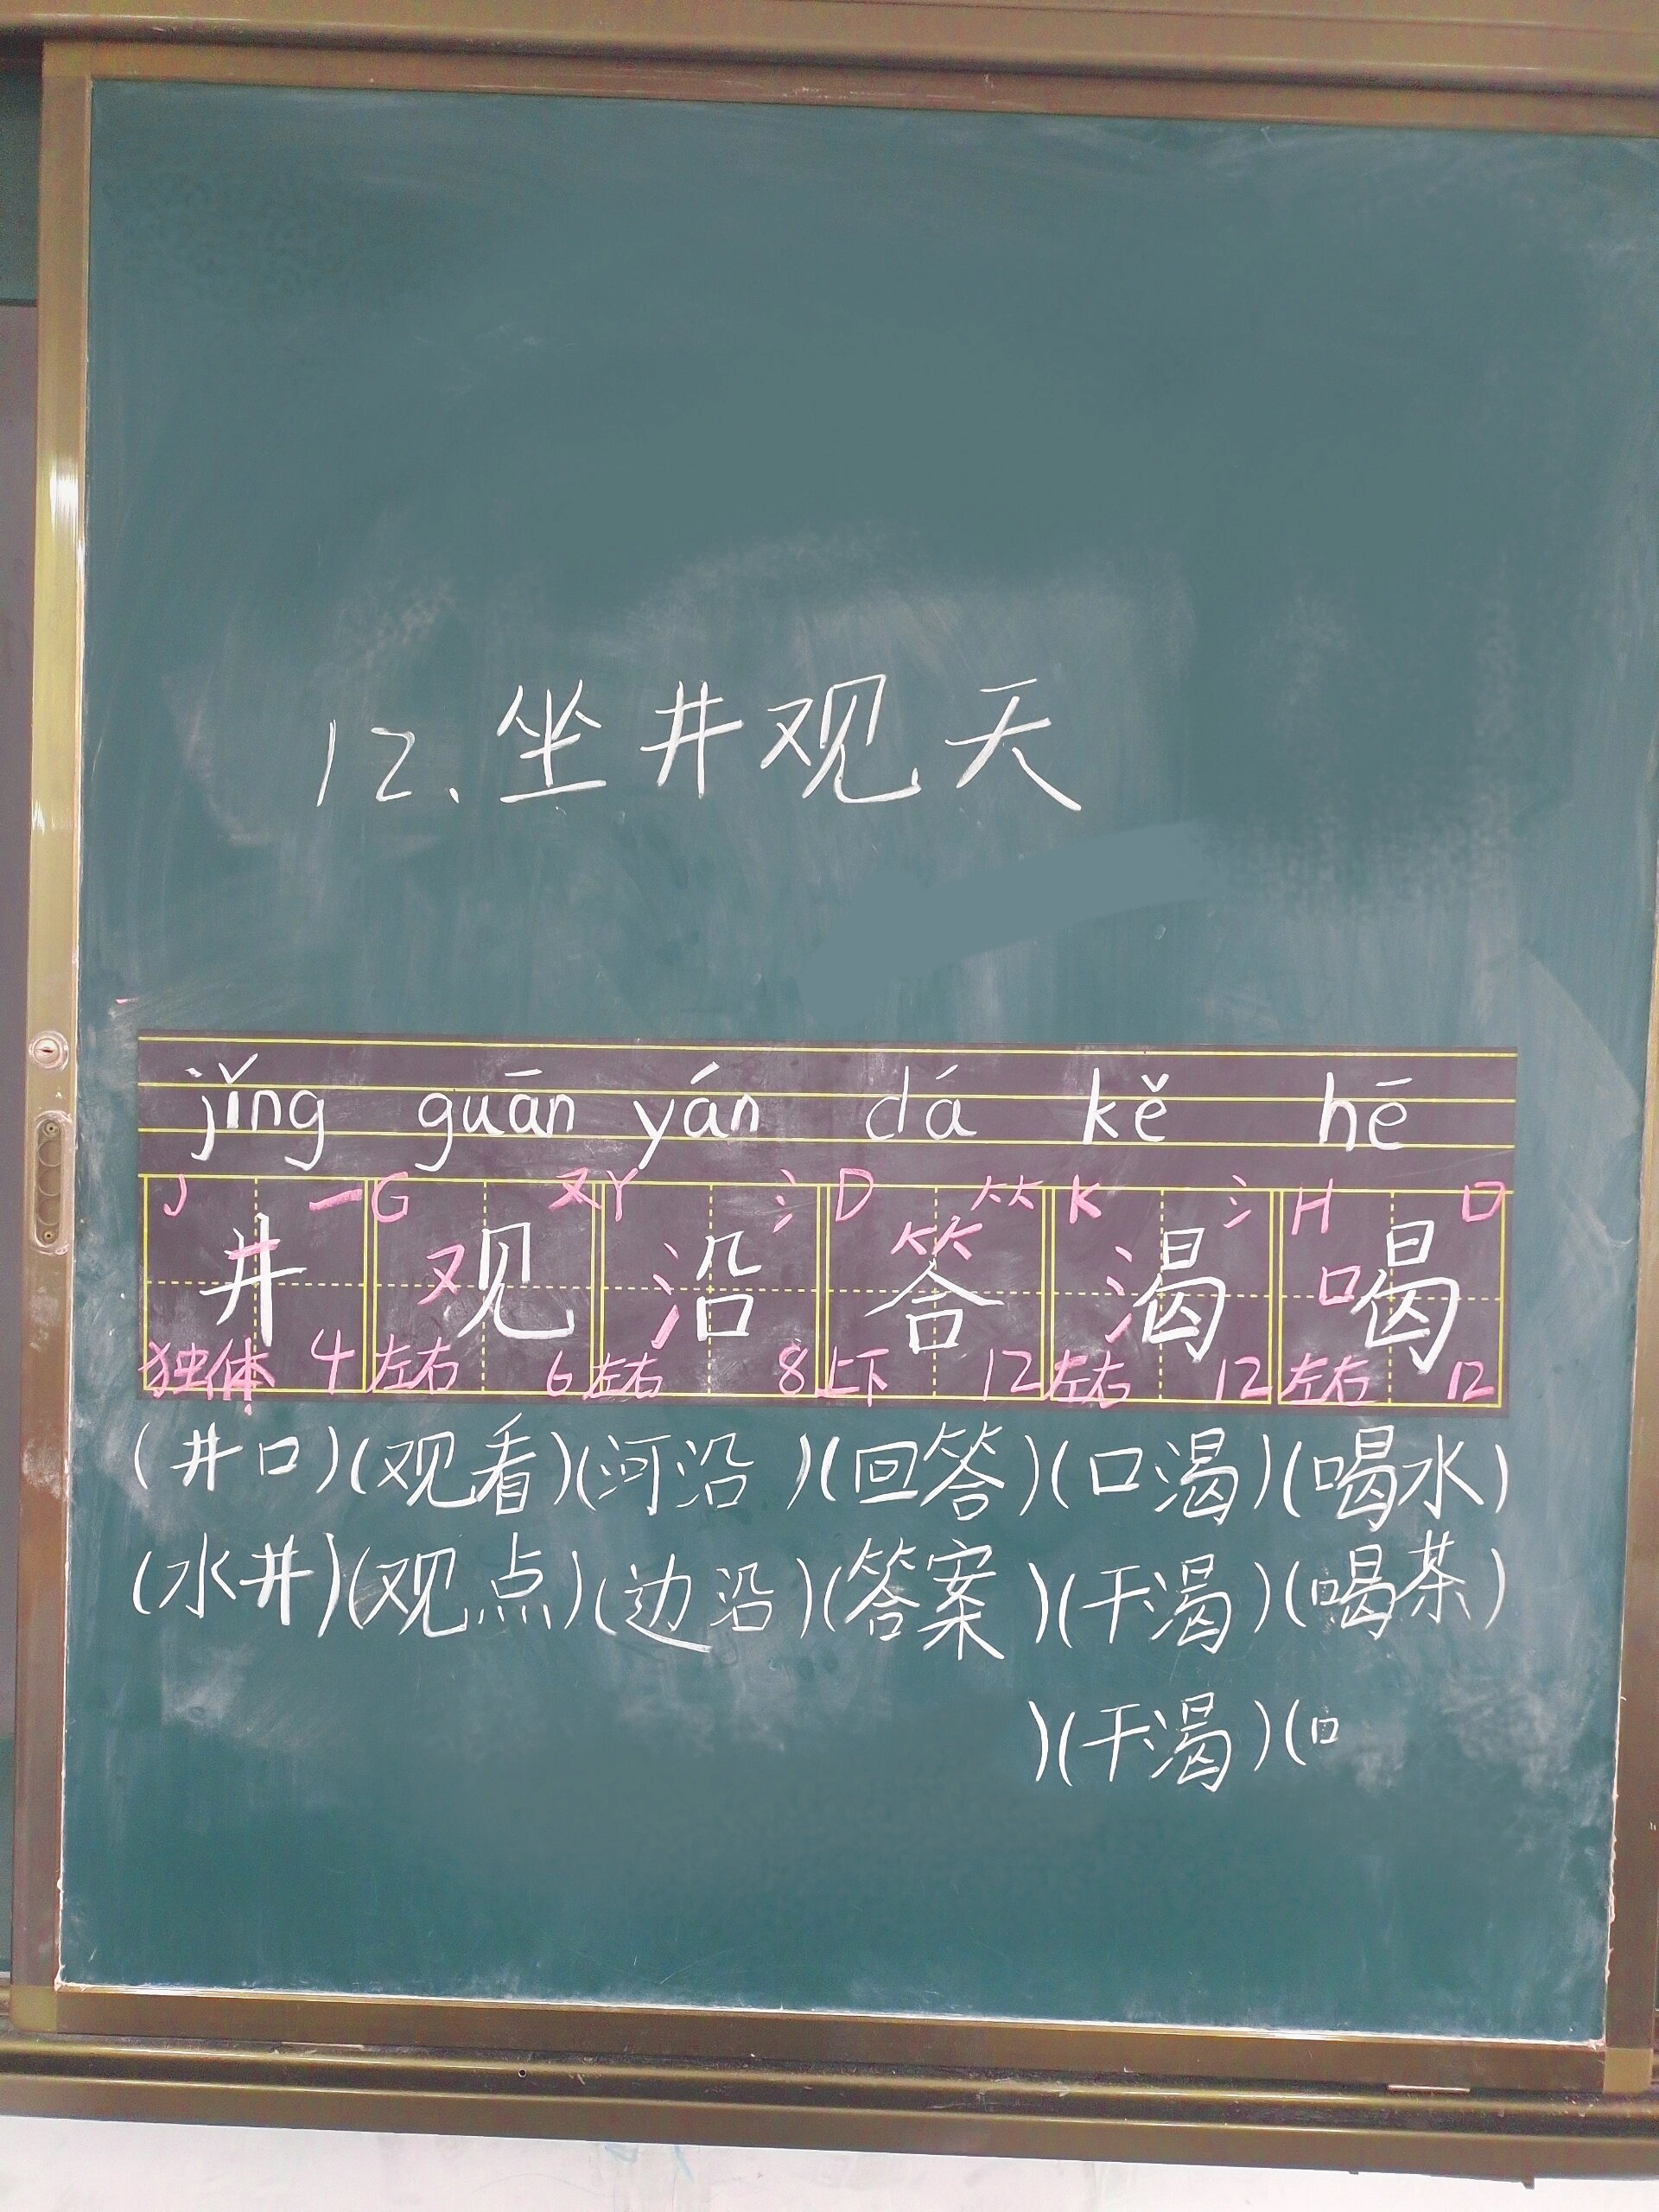 12.坐井观天
jǐng guān yán dá kě hē
J 一 G 又 Y 氵 D ⺮ K 氵 H 口
井 观 沿 答 渴 喝
独体 4 左右 6 左右 8 上下 12 左右 12 左右 12
(井口)(观看)(河沿)(回答)(口渴)(喝水)
(水井)(观点)(边沿)(答案)(干渴)(喝茶)
)(干渴)(口